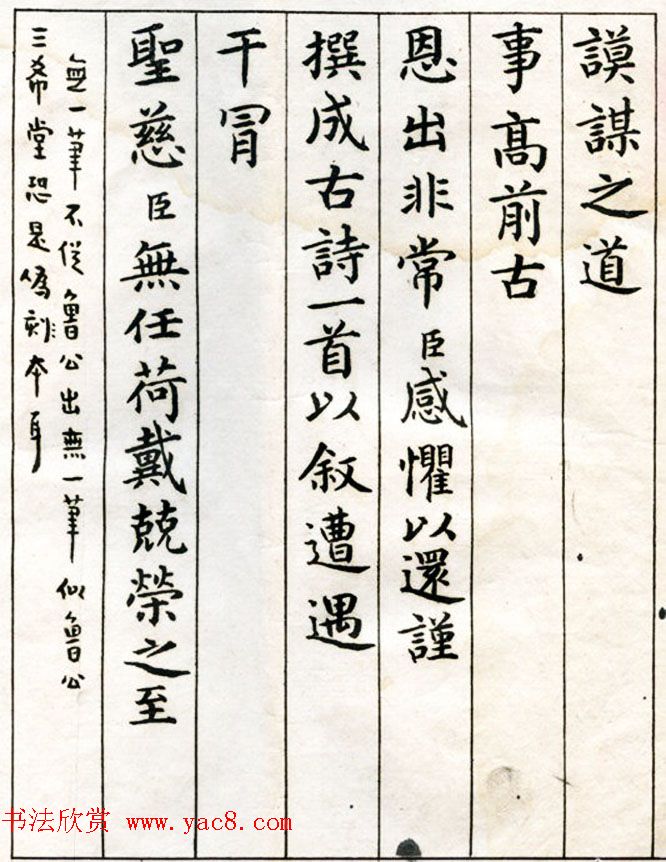 謨謀之道
事髙前古
恩出非常臣感懼以還謹
撰成古詩一首以叙遭遇
干冒
聖慈臣無任荷戴兢榮之至
無一筆不從魯公出無一筆似魯公
三希堂恐是僞刻本耳
书法欣赏 www.yac8.com